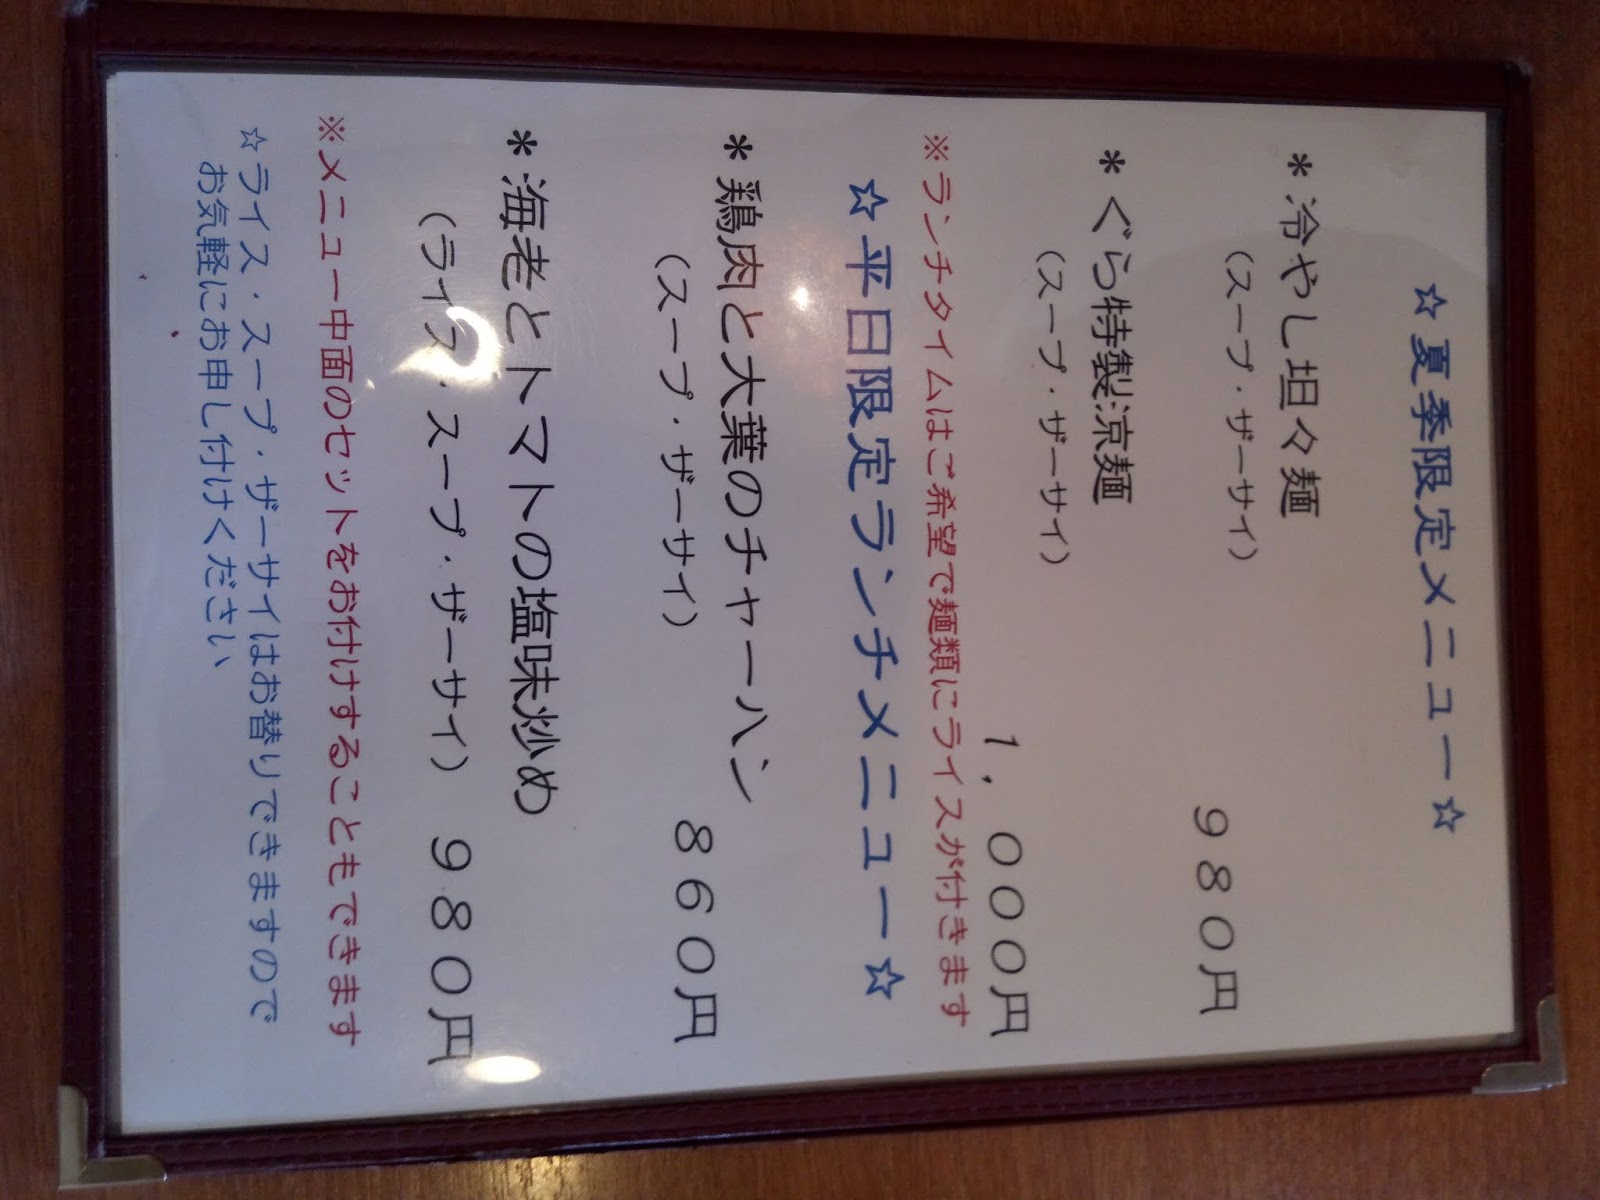 ☆夏季限定メニュー☆
*冷やし坦々麺
(スープ・ザーサイ)
980円
*ぐら特製涼麺
(スープ・ザーサイ)
1,000円
※ランチタイムはご希望で麺類にライスが付きます
☆平日限定ランチメニュー☆
*鶏肉と大葉のチャーハン
(スープ・ザーサイ) 860円
*海老とトマトの塩味炒め
(ライス・スープ・ザーサイ) 980円
※メニュー中面のセットをお付けすることもできます
☆ライス・スープ・ザーサイはお替りできますので
お気軽にお申し付けください